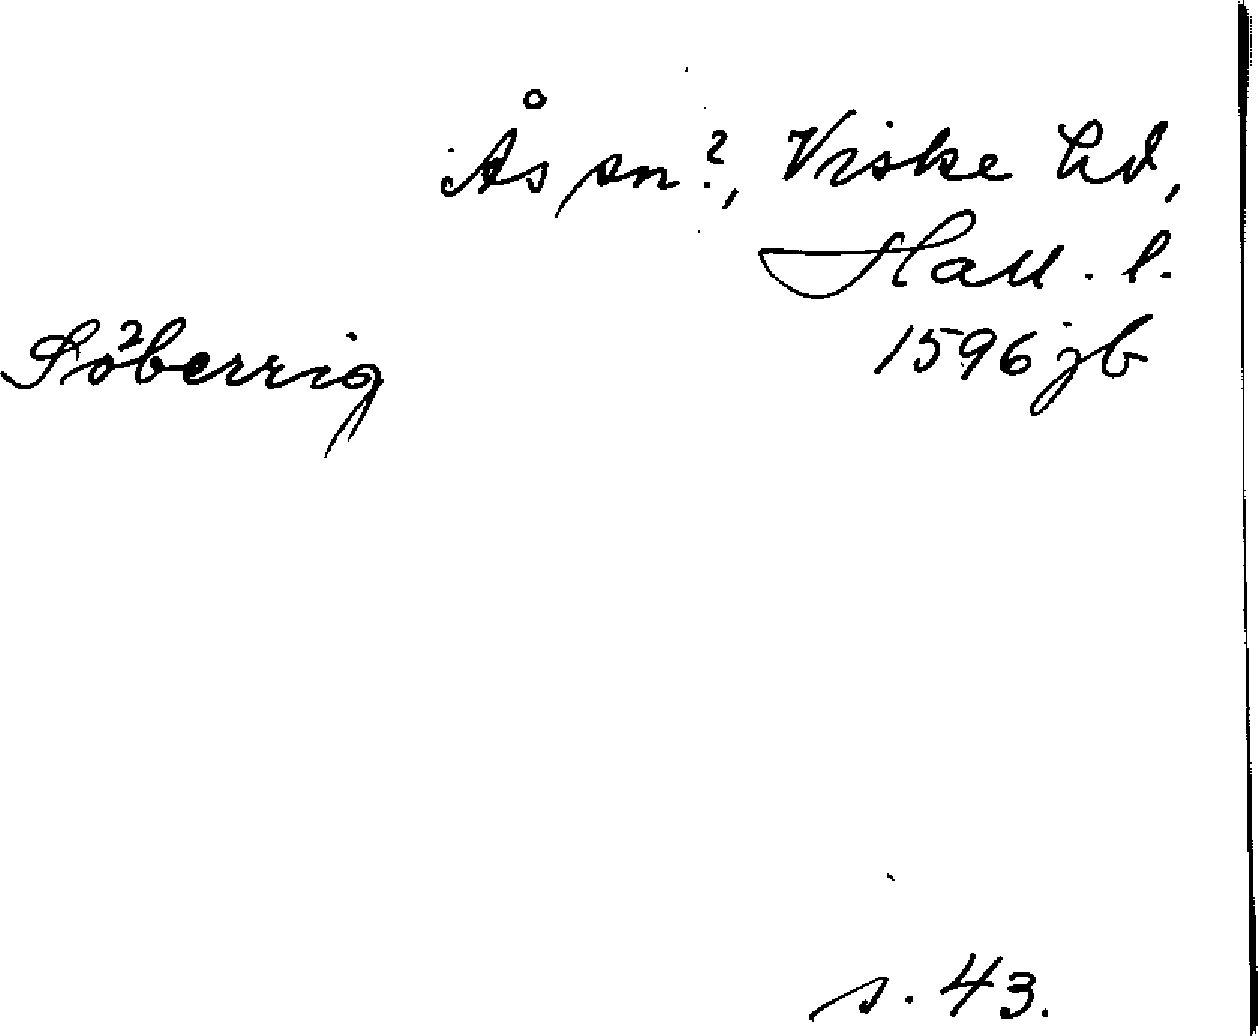 Ås sn?, Viske hd,
Hall. l.
Söberrig 1596 jb
s. 43.